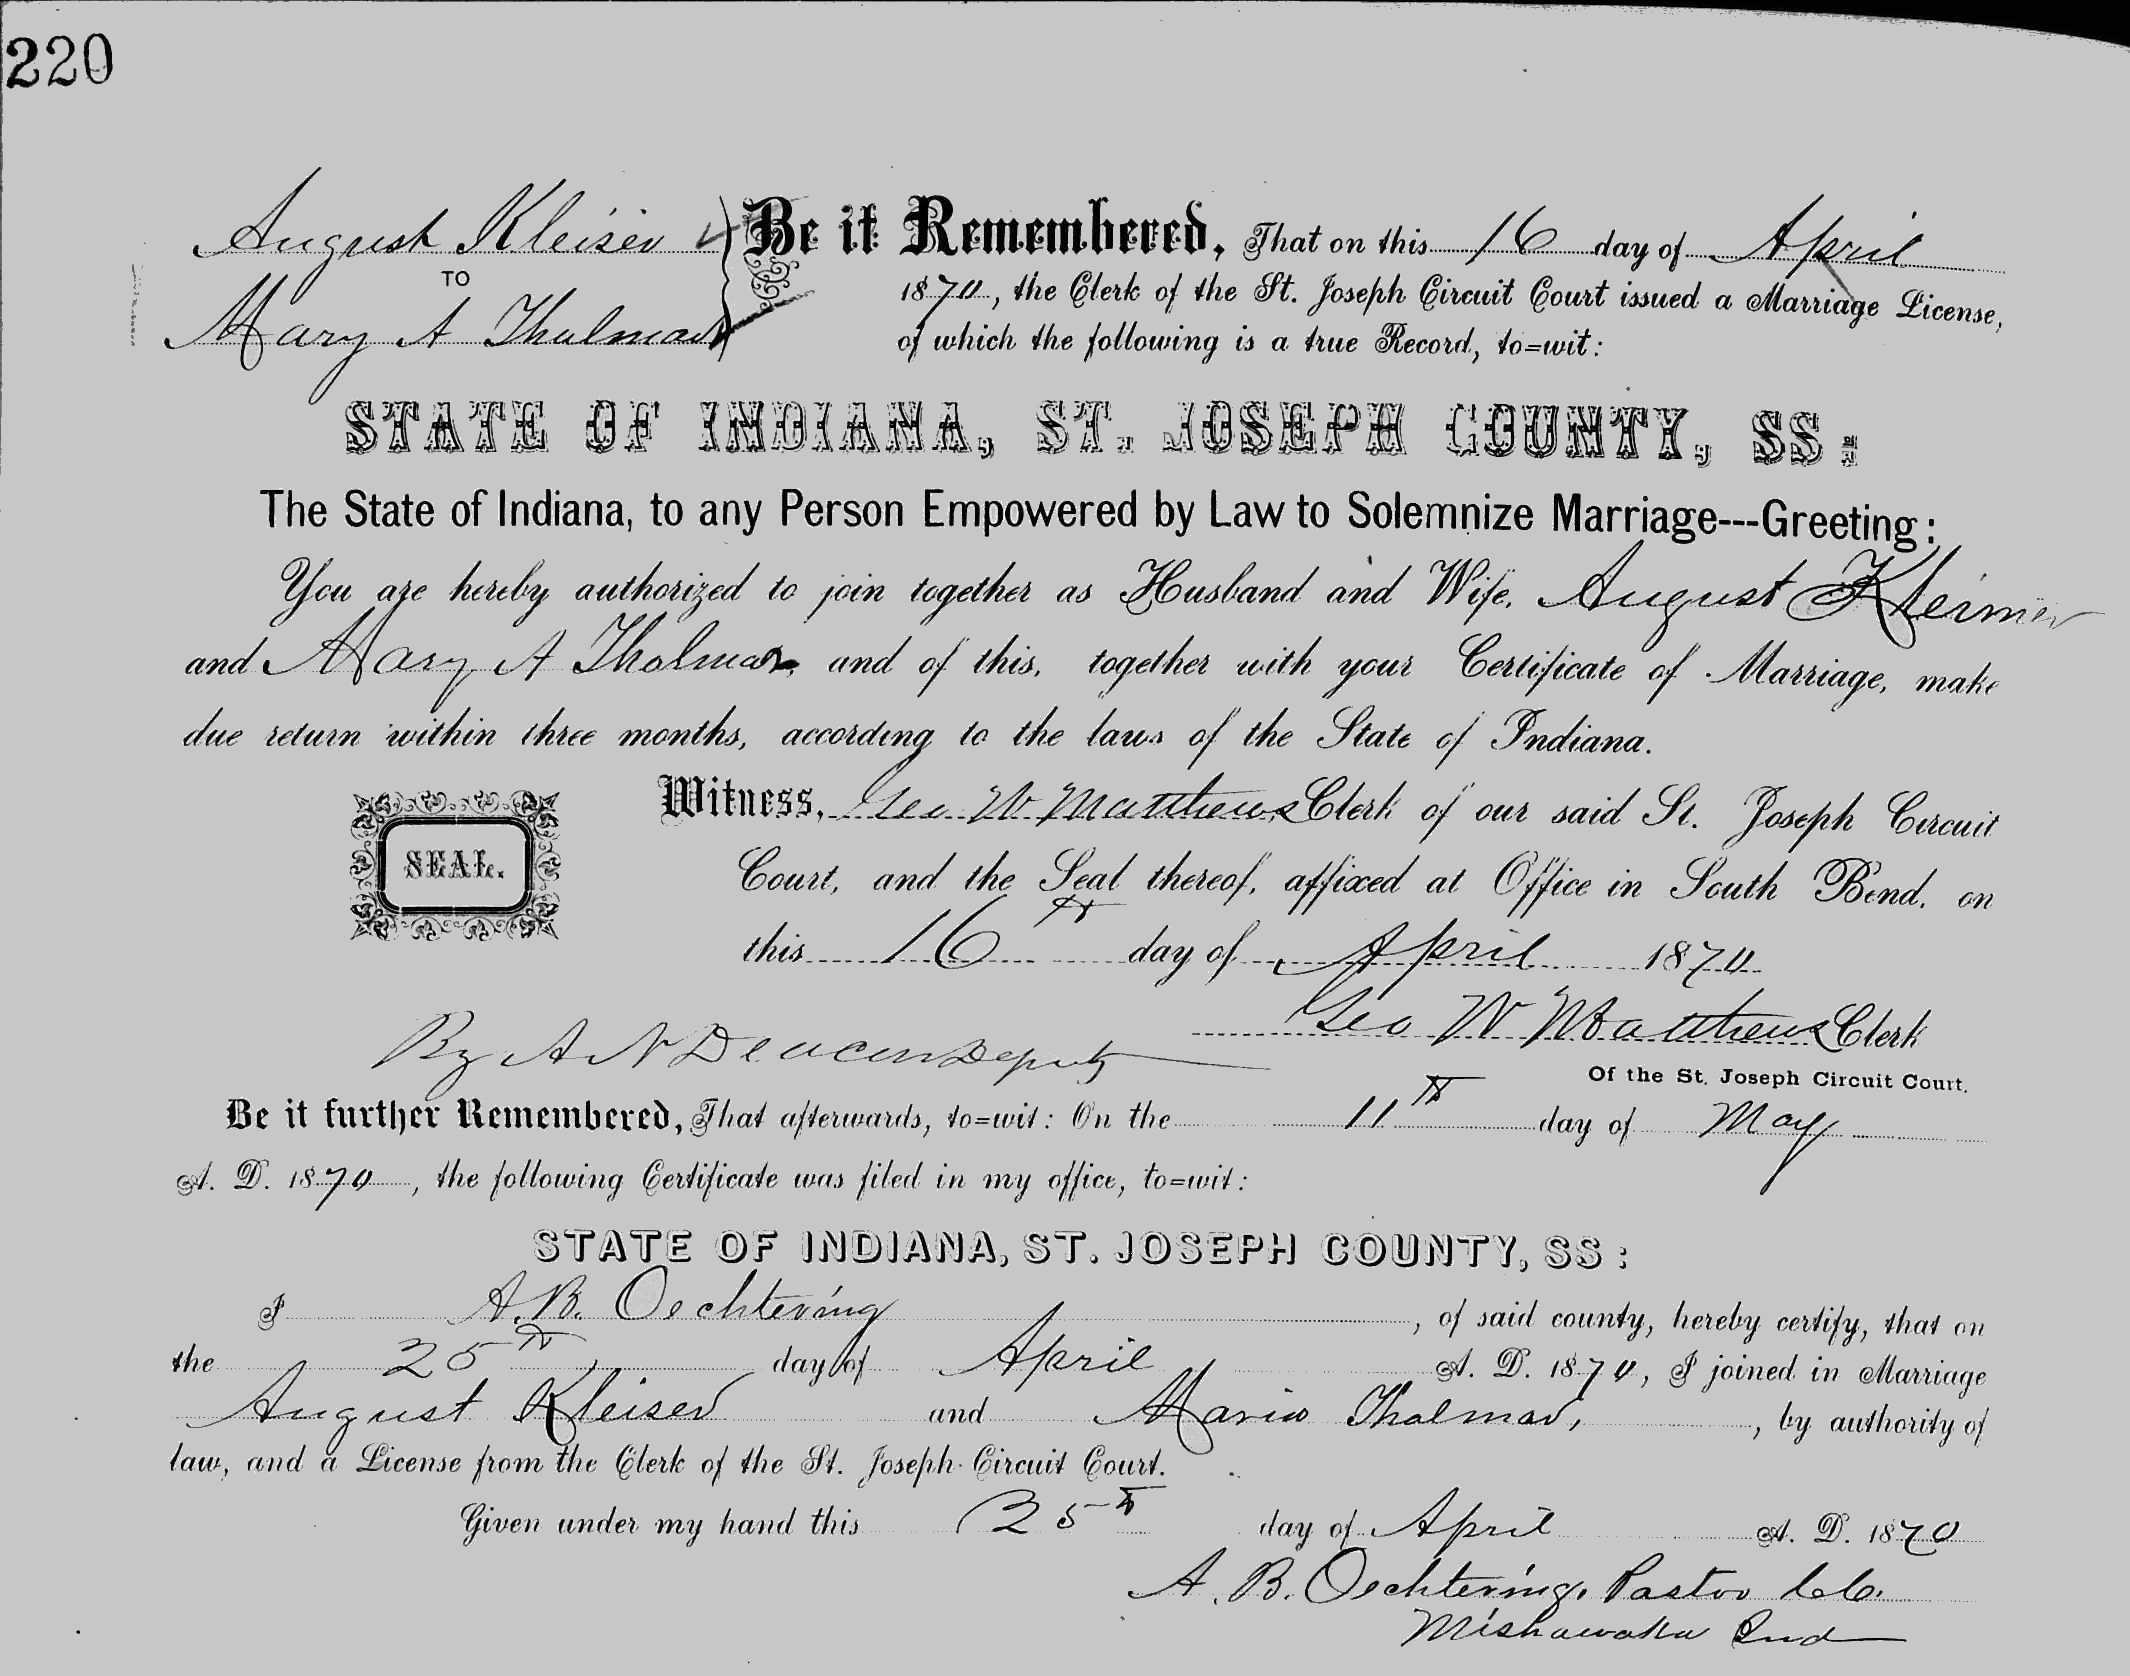 220
August Kleiser
TO
Mary A Thalmar
Be it Remembered, That on this 16 day of April
1870, the Clerk of the St. Joseph Circuit Court issued a Marriage License,
of which the following is a true Record, to=wit:
STATE OF INDIANA, ST. JOSEPH COUNTY, SS:
The State of Indiana, to any Person Empowered by Law to Solemnize Marriage---Greeting:
You are hereby authorized to join together as Husband and Wife, August
and Mary A Tholmar, and of this, together with your Certificate of Marriage, make
due return within three months, according to the laws of the State of Indiana.
SEAL.
Witness, Geo W Matthews Clerk of our said St. Joseph Circuit
Court, and the Seal thereof, affixed at Office in South Bend, on
this 16th day of April 1870
Geo W Matthews Clerk
By A N Deacon Deputy
Of the St. Joseph Circuit Court.
Be it further Remembered, That afterwards, to=wit: On the 11th day of May
A. D. 1870, the following Certificate was filed in my office, to=wit:
STATE OF INDIANA, ST. JOSEPH COUNTY, SS:
I A. B. Oechtering, of said county, hereby certify, that on
the 25th day of April A. D. 1870, I joined in Marriage
August Kleiser and Maria Thalmar, by authority of
law, and a License from the Clerk of the St. Joseph Circuit Court.
Given under my hand this 25th day of April A. D. 1870
A. B. Oechtering, Pastor C.C.
Mishawaka Ind